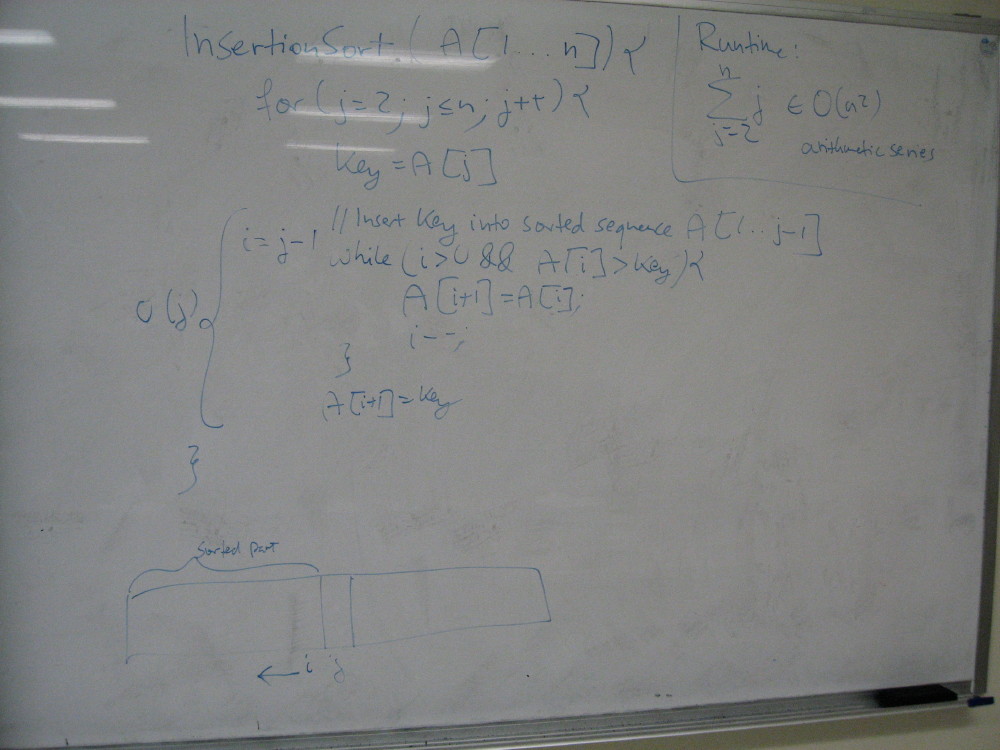 InsertionSort (A[1...n]){
for (j=2; j≤n; j++){
Key = A[j]
i = j-1 // Insert Key into sorted sequence A[1..j-1]
while (i>0 && A[i]>Key){
A[i+1]=A[i];
i--;
}
A[i+1]=Key
}
O(j)
Runtime:
n
∑ j ∈ O(n²)
j=2
arithmetic series
Sorted part
← i j